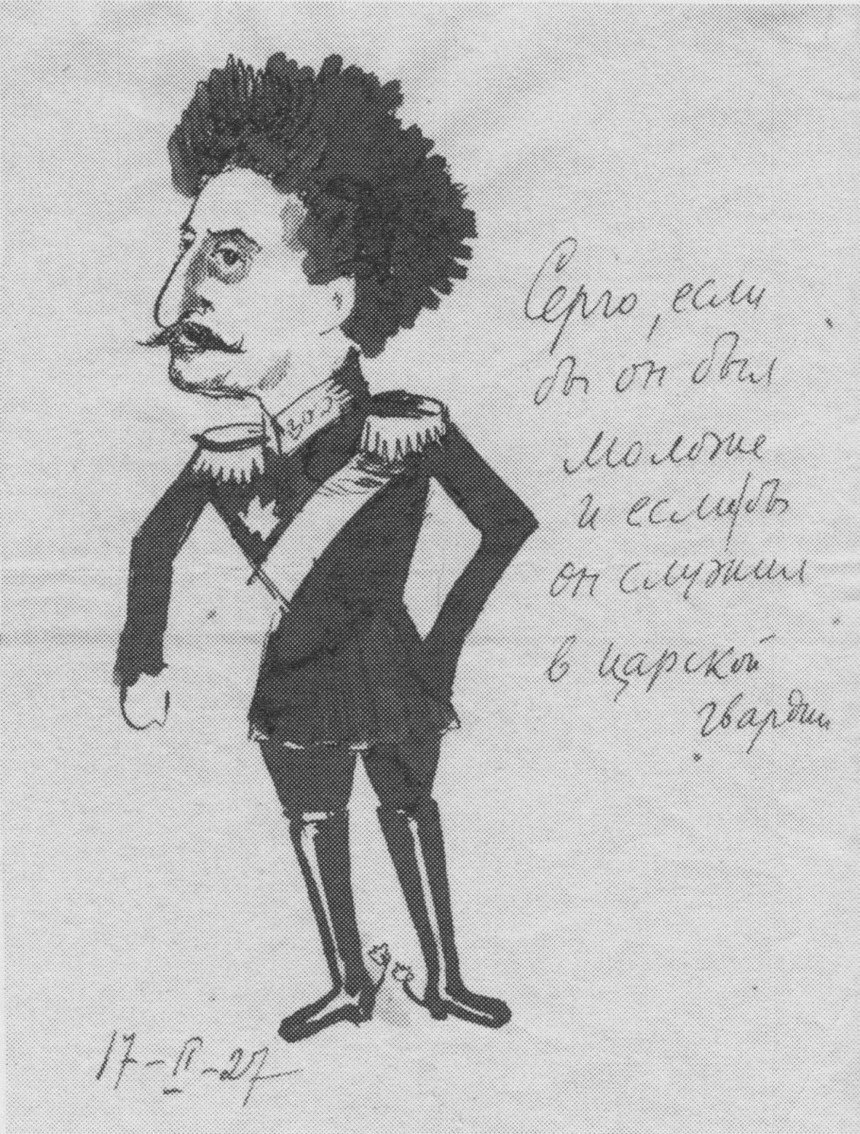 Серго, если
бы он был
моложе
и если бы
он служил
в царской
гвардии
17-II-27